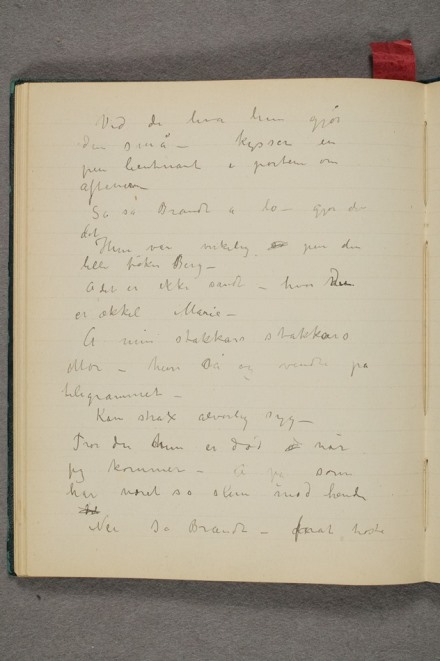 Ved du hva hun gjør
den små — kysser en
pen lieutnant i porten om
aftenen
Sa så Brandt a lo — gjør du
det
Hun var virkelig pen den
lille frøken Berg —
A det er ikke sandt — hun
er ækkel Marie —
A min stakkars stakkars
Mor — hun lå og ventet på
telegrammet —
Kom strax alvorlig syg —
Tror du hun er død når
jeg kommer — å jeg som
har været så slem mod hende
Nei sa Brandt —